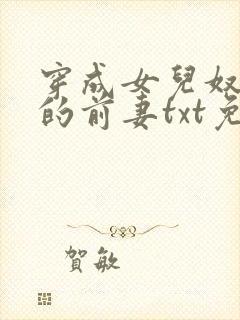 穿成女兒奴
的前妻txt免
賀敏